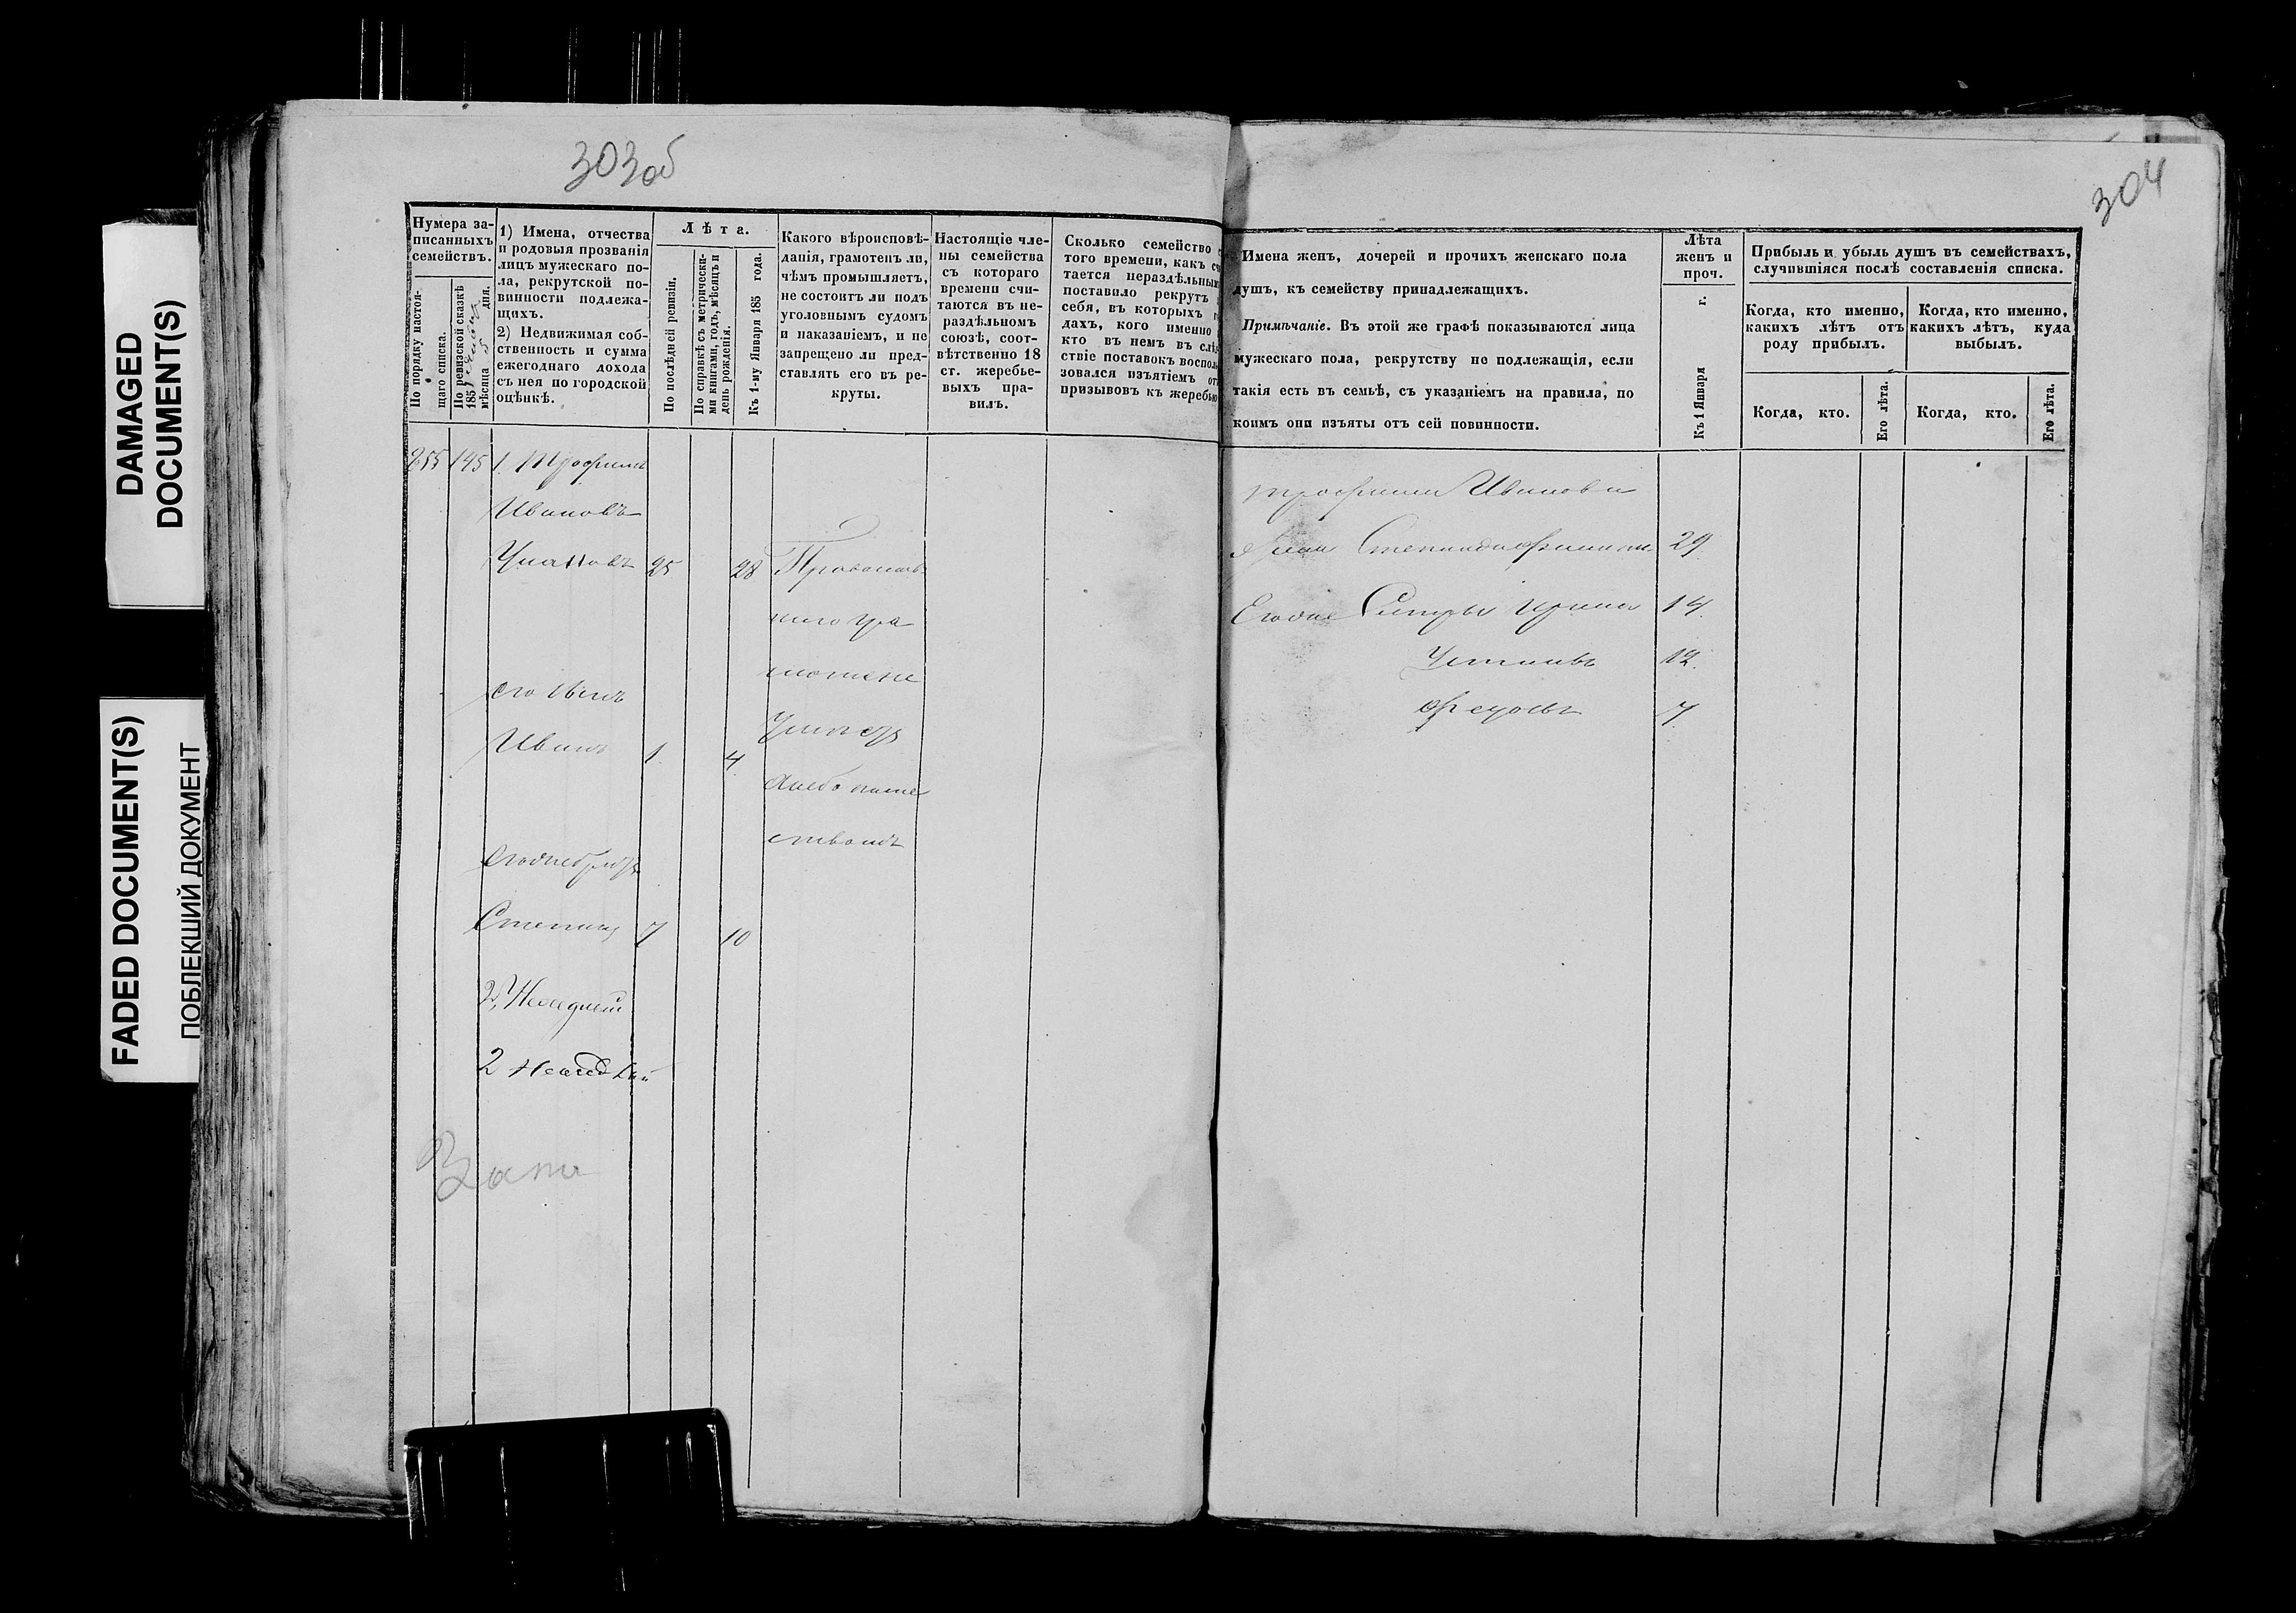 303об
304
DAMAGED
DOCUMENT(S)
FADED DOCUMENT(S)
ПОБЛЕКШИЙ ДОКУМЕНТ
Нумера за-
писанныхъ
семействъ.
По порядку настоя-
щаго списка.
По ревизской сказкѣ
185
мѣсяца 5 дня.
1) Имена, отчества
и родовыя прозванія
лицъ мужескаго по-
ла, рекрутской по-
винности подлежа-
щихъ.
2) Недвижимая соб-
ственность и сумма
ежегоднаго дохода
съ нея по городской
оцѣнкѣ.
Лѣта.
По послѣдней ревизіи.
По справкѣ съ метрически-
ми книгами, годъ, мѣсяцъ и
день рожденія.
Къ 1-му Января 185 года.
Какого вѣроисповѣ-
данія, грамотенъ ли,
чѣмъ промышляетъ,
не состоитъ ли подъ
уголовнымъ судомъ
и наказаніемъ, и не
запрещено ли пред-
ставлять его въ ре-
круты.
Настоящіе чле-
ны семейства
съ котораго
времени счи-
таются въ не-
раздѣльномъ
союзѣ, соот-
вѣтственно 18
ст. жеребье-
выхъ пра-
вилъ.
Сколько семейство с
того времени, какъ сч
тается нераздѣльнымъ
поставило рекрутъ
себя, въ которыхъ г
дахъ, кого именно
кто въ немъ въ слѣд
ствіе поставокъ воспол
зовался изъятіемъ отъ
призывовъ къ жеребью
Имена женъ, дочерей и прочихъ женскаго пола
душъ, къ семейству принадлежащихъ.
Примѣчаніе. Въ этой же графѣ показываются лица
мужескаго пола, рекрутству не подлежащія, если
такія есть въ семьѣ, съ указаніемъ на правила, по
коимъ они изъяты отъ сей повинности.
Лѣта
женъ и
проч.
Къ 1 Января г.
Прибыль и убыль душъ въ семействахъ,
случившіяся послѣ составленія списка.
Когда, кто именно,
какихъ лѣтъ отъ
роду прибылъ.
Когда, кто именно,
какихъ лѣтъ, куда
выбылъ.
Когда, кто.
Его лѣта.
Когда, кто.
Его лѣта.
255 145 1. Трофимъ
Ивановъ
25 28 Православ
наго гра
мотене
хлебопаше
ствомъ
его сынъ
Иванъ 1. 4.
Степанъ 7 10
Трофима Иванова
жена Степанида 29.
Его же Сестры Ирина 14.
12.
7.